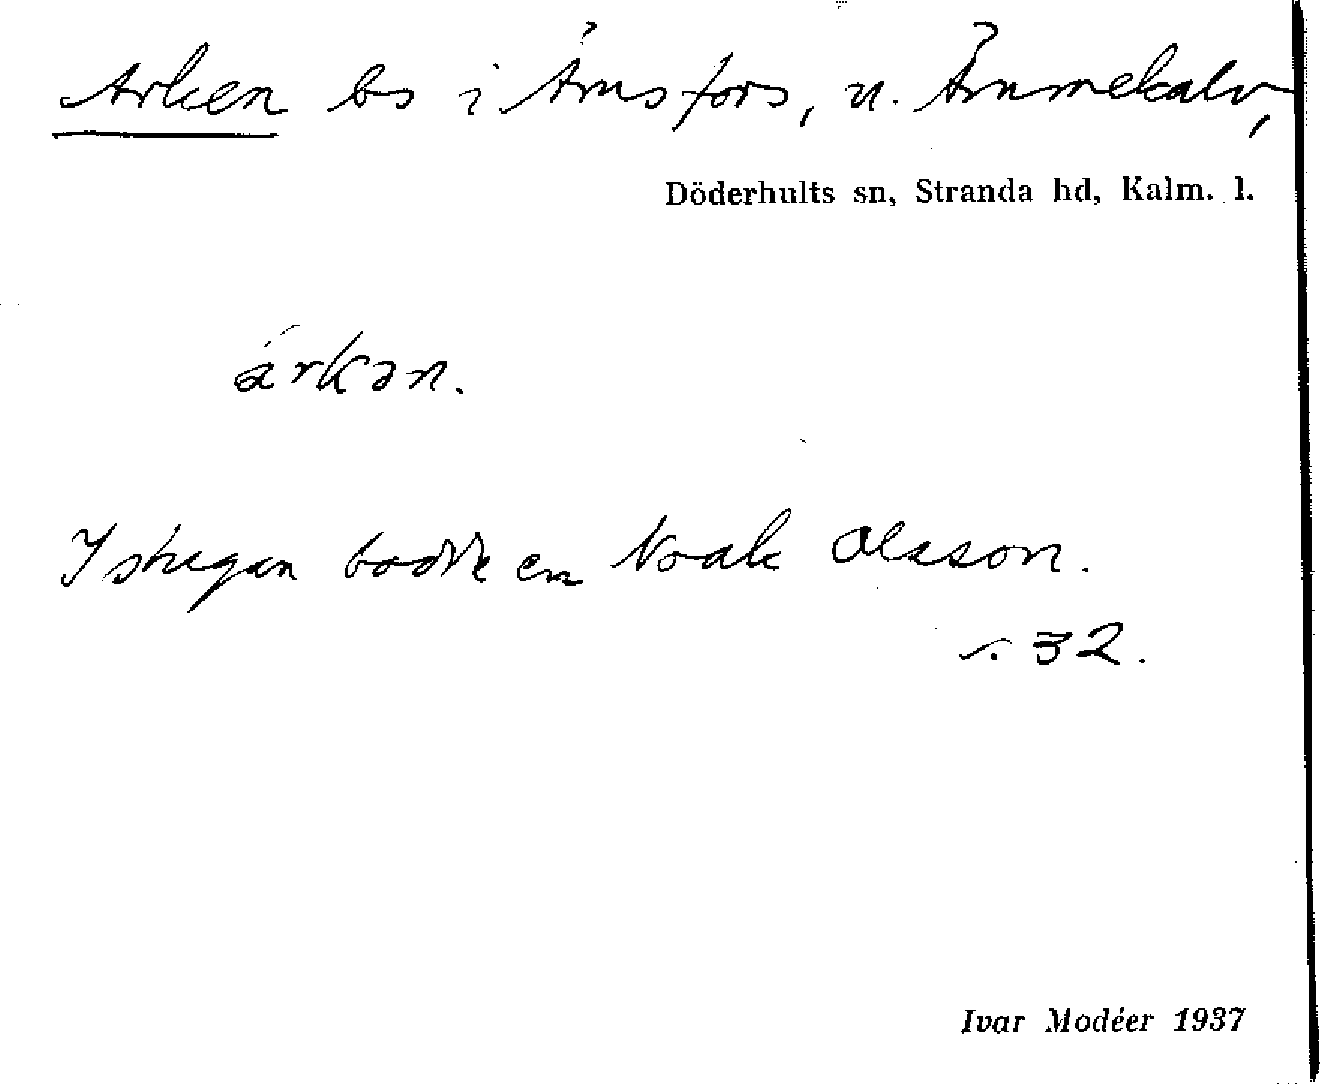 Arken bs i Århusfors, u. Århmekalv,
Döderhults sn, Stranda hd, Kalm. l.
árkən.
I stugan bodde en Noak Olsson.
s. 32.
Ivar Modéer 1937